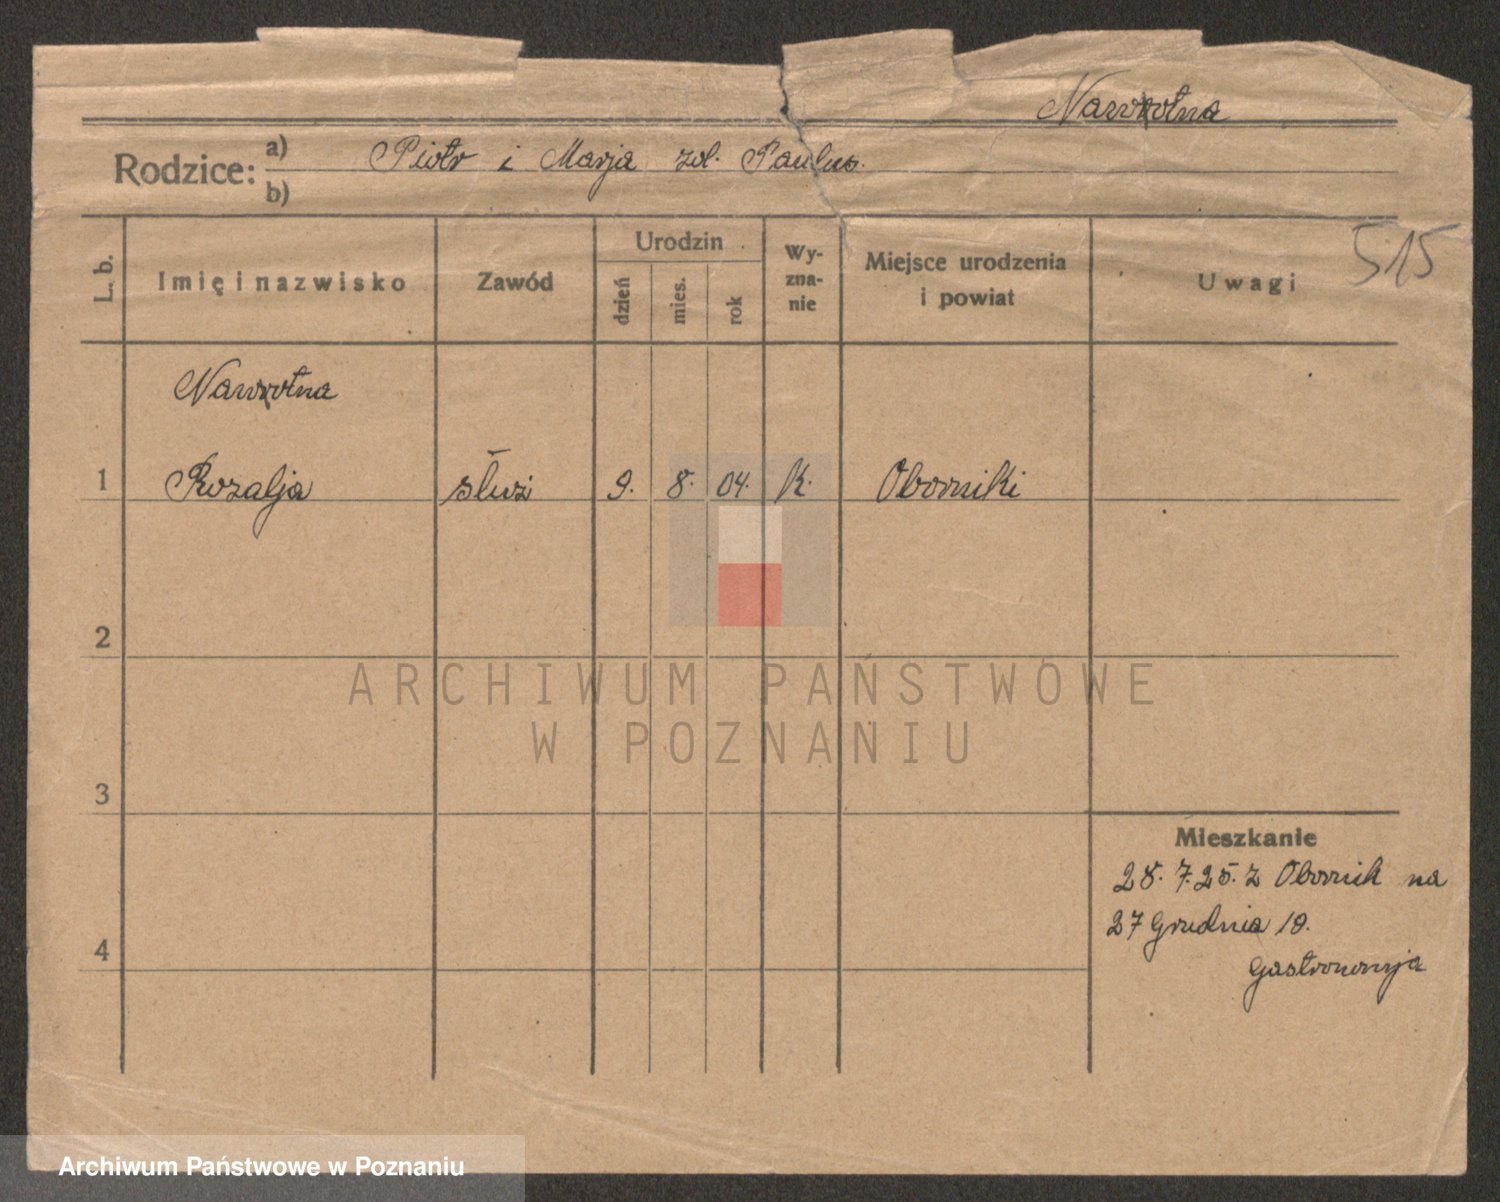 Nawrotna
Rodzice: a) Piotr i Marja zd. Paulus.
b)
515
L. b.
Imię i nazwisko
Zawód
Urodzin
dzień
mies.
rok
Wy-
zna-
nie
Miejsce urodzenia
i powiat
Uwagi
Nawrotna
1 Rozalja służ 9. 8. 04. K. Oborniki
2
3
4
Mieszkanie
28. 7. 25. z Obornik na
27 Grudnia 19.
Gastronomja
ARCHIWUM PAŃSTWOWE
W POZNANIU
Archiwum Państwowe w Poznaniu